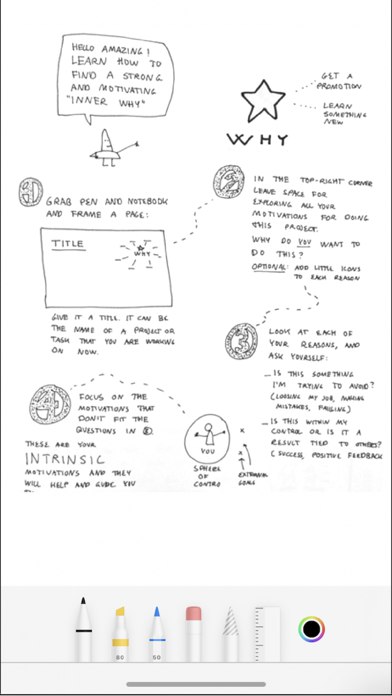 HELLO AMAZING!
LEARN HOW TO
FIND A STRONG
AND MOTIVATING
"INNER WHY"
GET A
PROMOTION
LEARN
SOMETHING
NEW
WHY
1
GRAB PEN AND NOTEBOOK
AND FRAME A PAGE:
TITLE
WHY
GIVE IT A TITLE. IT CAN BE
THE NAME OF A PROJECT OR
TASK THAT YOU ARE WORKING
ON NOW.
2
IN THE TOP-RIGHT CORNER
LEAVE SPACE FOR
EXPLORING ALL YOUR
MOTIVATIONS FOR DOING
THIS PROJECT.
WHY DO YOU WANT TO
DO THIS?
OPTIONAL: ADD LITTLE ICONS
TO EACH REASON
3
LOOK AT EACH OF
YOUR REASONS, AND
ASK YOURSELF:
_ IS THIS SOMETHING
I'M TRYING TO AVOID?
(LOOSING MY JOB, MAKING
MISTAKES, FAILING)
_ IS THIS WITHIN MY
CONTROL OR IS IT A
RESULT TIED TO OTHERS?
(SUCCESS, POSITIVE FEEDBACK
4
FOCUS ON THE
MOTIVATIONS THAT
DON'T FIT THE
QUESTIONS IN 3.
THESE ARE YOUR
INTRINSIC
MOTIVATIONS AND THEY
WILL HELP AND GUIDE YOU
YOU
SPHERE
OF
CONTRO
x
x
EXTRINSIC
GOALS
80
50